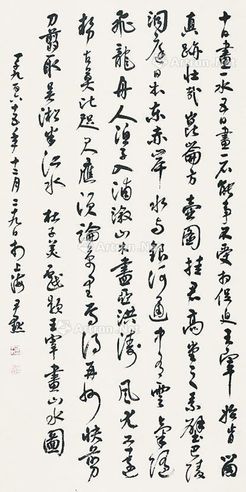 十日畫一水五日畫一石能事不受相促迫王宰始肯留
真跡壯哉崑崙方壺圖挂君高堂之素壁巴陵
洞庭日本東赤岸水與銀河通中有雲氣隨
飛龍舟人漁子入浦漵山木盡亞洪濤風尤工遠
勢古莫比咫尺應須論萬里焉得并州快剪
刀剪取吳淞半江水 杜子美戲題王宰畫山水圖
年十二月二九日於上海 尹默